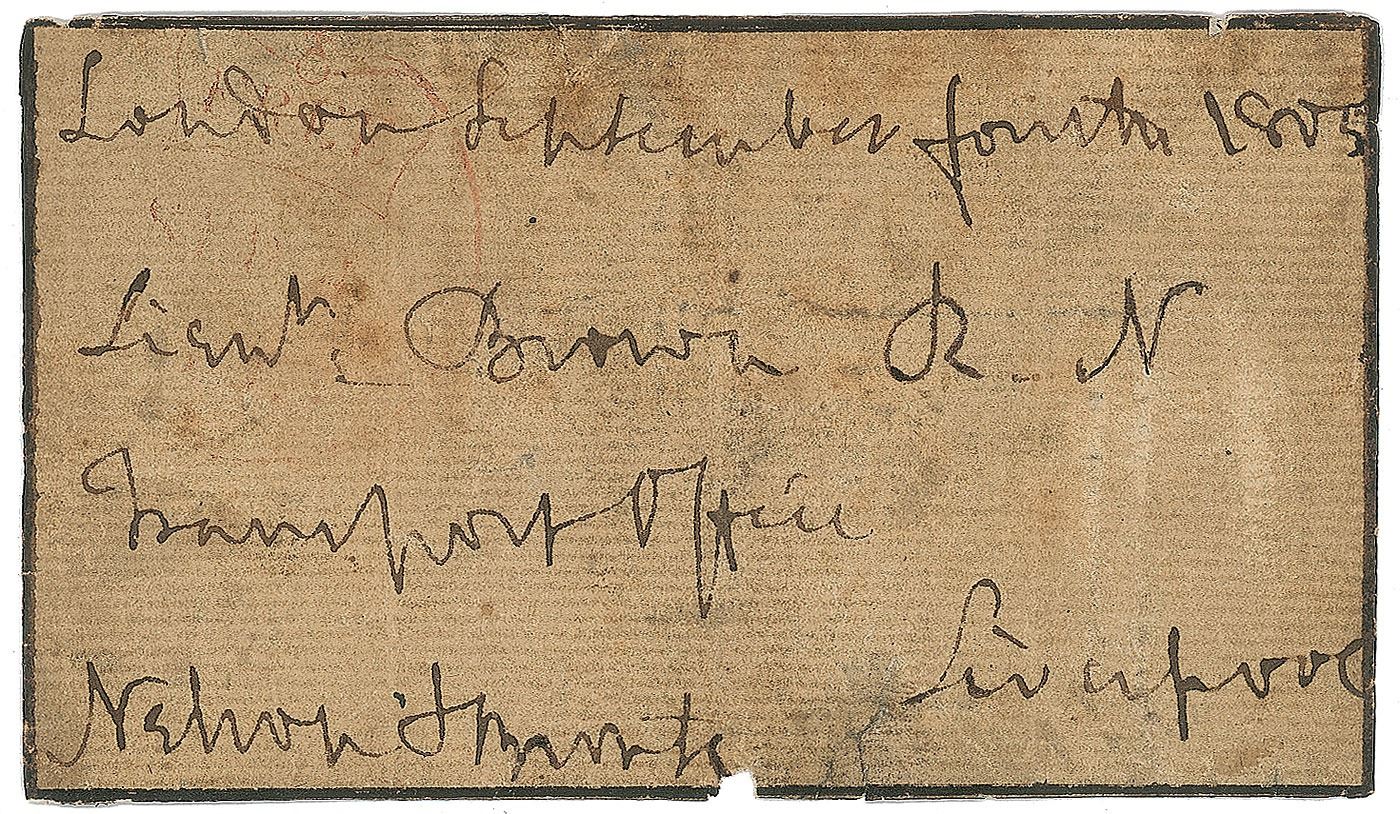 London September fourth 1805
Lieut. Brown R. N
Transport Office
Liverpool
Nelson & Bronte